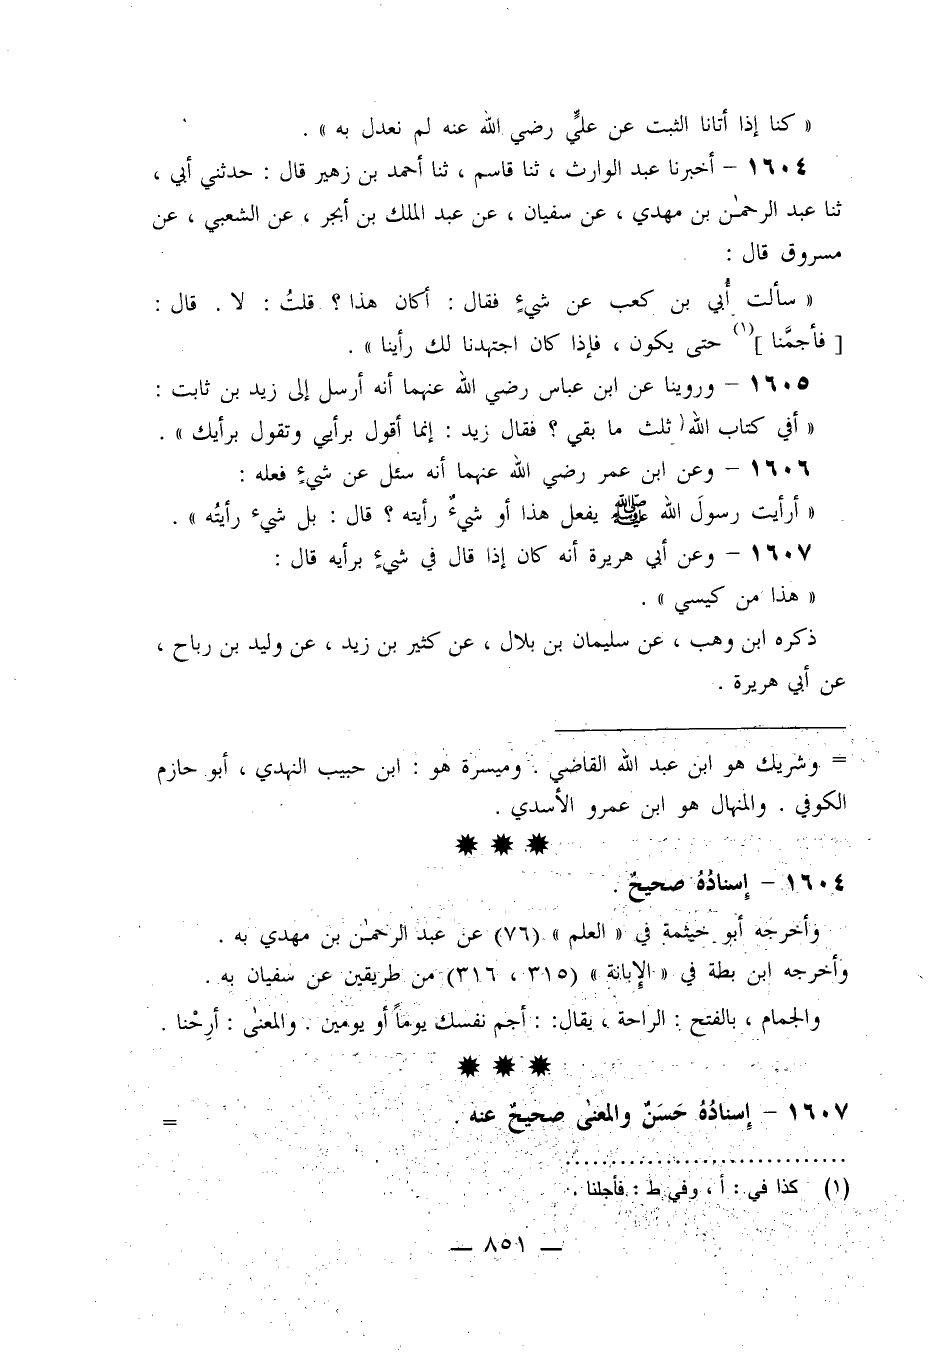 « كنا إذا أتانا الثبت عن عليٍّ رضي الله عنه لم نعدل به » .
١٦٠٤ - أخبرنا عبد الوارث ، ثنا قاسم ، ثنا أحمد بن زهير قال : حدثني أبي ،
ثنا عبد الرحمـٰن بن مهدي ، عن سفيان ، عن عبد الملك بن أبجر ، عن الشعبي ، عن
مسروق قال :
« سألت أُبي بن كعب عن شيءٍ فقال : أكان هذا ؟ قلتُ : لا . قال :
[ فأجمَّنا ](١) حتى يكون ، فإذا كان اجتهدنا لك رأينا » .
١٦٠٥ - وروينا عن ابن عباس رضي الله عنهما أنه أرسل إلى زيد بن ثابت :
« أفي كتاب الله ثلث ما بقي ؟ فقال زيد : إنما أقول برأيي وتقول برأيك » .
١٦٠٦ - وعن ابن عمر رضي الله عنهما أنه سئل عن شيءٍ فعله :
« أرأيت رسولَ الله ﷺ يفعل هذا أو شيءٌ رأيته ؟ قال : بل شيء رأيتُه » .
١٦٠٧ - وعن أبي هريرة أنه كان إذا قال في شيءٍ برأيه قال :
« هذا من كيسي » .
ذكره ابن وهب ، عن سليمان بن بلال ، عن كثير بن زيد ، عن وليد بن رباح ،
عن أبي هريرة .
= وشريك هو ابن عبد الله القاضي . وميسرة هو : ابن حبيب النهدي ، أبو حازم
الكوفي . والمنهال هو ابن عمرو الأسدي .
١٦٠٤ - إسنادُهُ صحيحٌ .
وأخرجه أبو خيثمة في « العلم » (٧٦) عن عبد الرحمـٰن بن مهدي به .
وأخرجه ابن بطة في « الإبانة » (٣١٥ ، ٣١٦) من طريقين عن سفيان به .
والجمام ، بالفتح : الراحة ، يقال : : أجم نفسك يوماً أو يومين . والمعنىٰ : أرِحْنا .
١٦٠٧ - إسنادُهُ حَسَنٌ والمعنىٰ صحيحٌ عنه . =
(١) كذا في : أ ، وفي ط : فأجلنا .
— ٨٥١ —